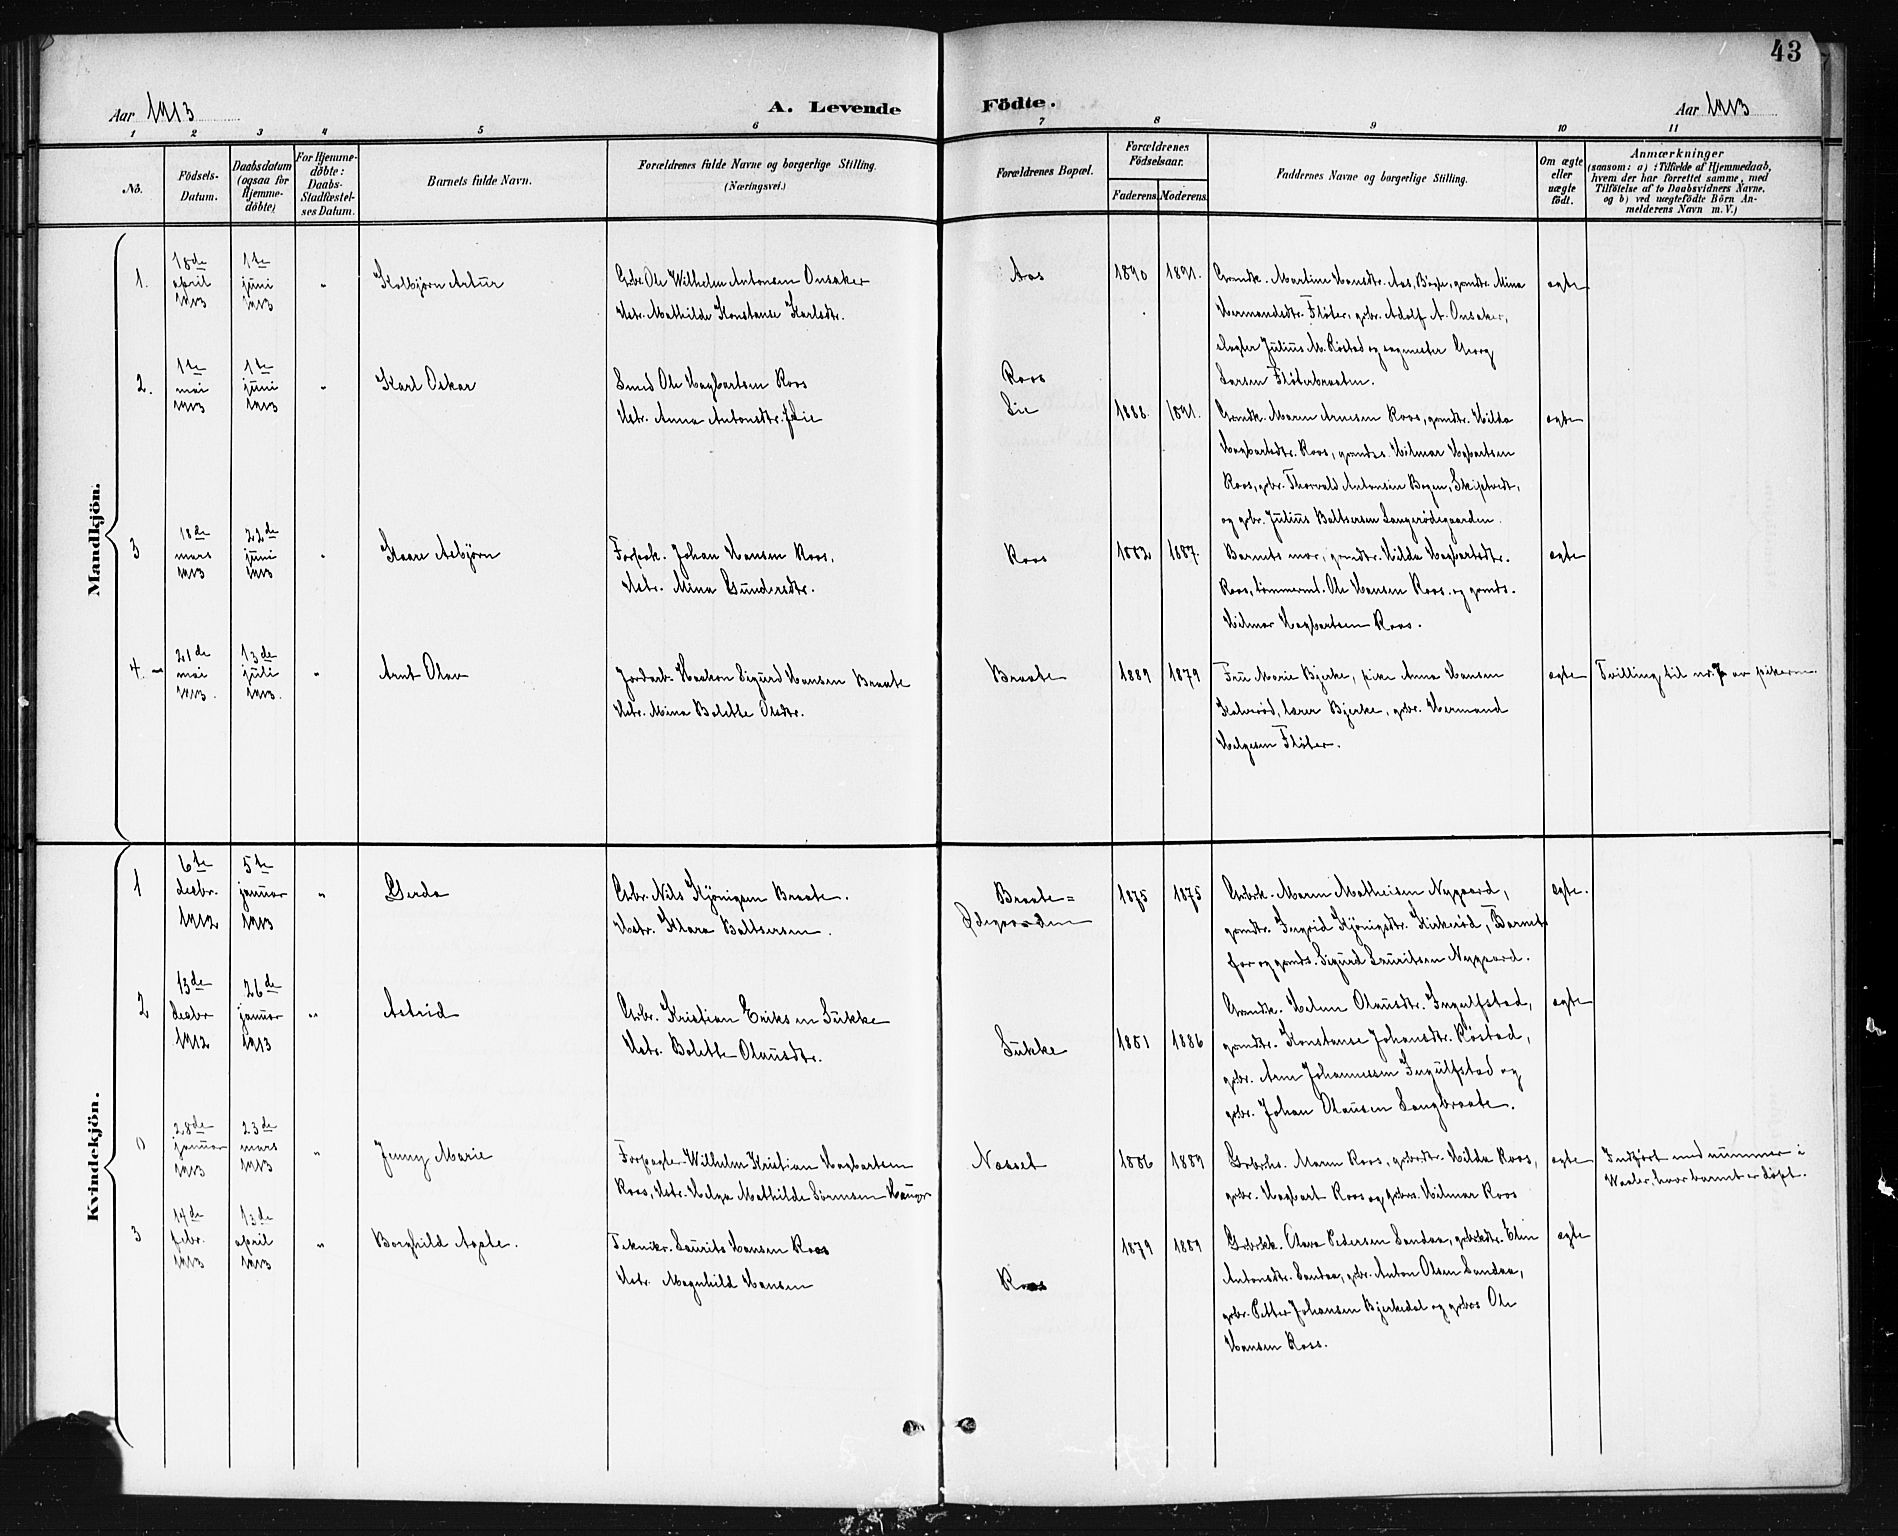 43
Aar 1913
A. Levende
Födte.
Aar 1913
1 2 3 4 5 6 7 8 9 10 11
No.
Födsels-
Datum.
Daabsdatum
(ogsaa for
Hjemme-
döbte)
For Hjemme-
döbte:
Daabs-
Stadfæstel-
ses Datum.
Barnets fulde Navn.
Forældrenes fulde Navne og borgerlige Stilling.
(Næringsvei.)
Forældrenes Bopæl.
Forældrenes
Födselsaar.
Faderens.
Moderens.
Faddernes Navne og borgerlige Stilling.
Om ægte
eller
uægte
födt.
Anmærkninger
(saasom: a) i Tilfælde af Hjemmedaab,
hvem der har forrettet samme, med
Tilföielse af to Daabsvidners Navne,
og b) ved uægtefödte Börn An-
melderens Navn m. V.)
Mandkjön.
1.
18de
april
1913
1te
juni
1913
"
Kolbjørn Artur
Gbr. Ole Wilhelm Antonsen Onsaker
Hstr. Mathilde Konstanse Karlsdtr.
Aas
1890
1891.
Grmdk. Martine Hansdtr. Aas, Bøgle, grmdtr. Mina
Hermandsdtr. Fløter, gbr. Adolf A. Onsaker,
Julius M. Røstad og sagmester Georg
Larsen Fløterbraaten.
ægte
2.
1te
mai
1913
1te
juni
1913
"
Karl Oskar
Smed Ole Hagbartsen Roos
Hstr. Anna Antonsdtr. f. Lie
Roos
Lie
1888.
1891.
Grmdk. Maren Arnesen Roos, grmdtr. Hilda
Hagbartsdtr. Roos, grmds. Hilmar Hagbartsen
Roos, gbr. Thorvald Antonsen Bogen, Skiptvedt,
og gbr. Julius Baltsersen Langerødegaarden.
ægte
3
18de
mars
1913
22de
juni
1913
"
Kaare Asbjørn
Forpak. Johan Hansen Roos,
Hstr. Mina Gundersdtr.
Roos
1882
1887.
Barnets mor, grmdtr. Hilda Hagbartsdtr.
Roos, tømmermt. Ole Hansen Roos og grmds.
Hilmar Hagbartsen Roos.
ægte
4.
21de
mai
1913.
13de
juli
1913.
"
Arnt Olav
Jordarb. Haakon Sigurd Hansen Braate
Hstr. Mina Bolette Olsdtr.
Braate
1889
1879
Frue Marie Bjerke, pike Anna Hansen
Kalverød, lærer Bjerke, gbr. Hermand
Helgesen Fløter.
ægte
Tvilling til nr. 7 av pikerne.
Kvindekjön.
1
6te
desbr.
1912
5te
januar
1913
"
Gerda
Gbr. Nils Kjønigsen Braate.
Hstr. Klara Baltsersen.
Braate=
Ødegaarden
1875
1875
Gbrk. Maren Matheisen Nygaard,
grmdtr. Ingrid Kjønigsdtr. Kirkerød, Barnets
far og grmds. Sigurd Lauritsen Nygaard.
Ægte.
2
13de
desbr
1912
26de
januar
1913
"
Astrid
Gbr. Kristian Eriksen Sukke
Hstr. Bolette Olausdtr.
Sukke
1881
1886
Grmdk. Helene Olausdtr. Ingulfstad,
grmdtr. Konstanse Johansdtr. Røstad,
gbr. Arne Johannessen Ingulfstad og
gbr. Johan Olausen Langbraate.
ægte
0
28de
januar
1913
23de
mars
1913
"
Jenny Marie
Forpagter Wilhelm Kristian Hagbartsen
Roos, Hstr. Helga Mathilde Sørensen Hauger
Næsset
1886
1889
Gbrks. Maren Roos, gbrdtr. Hilda Roos,
gbr. Hagbart Roos og gbrs. Hilmar Roos
ægte
Indført med nummer i
Waaler, hvor barnet er døpt.
3
14de
febr.
1913
13de
april
1913
"
Borghild Agate.
Teknikr. Laurits Hansen Roos
Hstr. Magnhild Hansen
Roos
1879
1889
Gbrk. Olava Pedersen Sandaa, gbrdtr. Elin
Antonsdtr. Sandaa, gbr. Anton Olsen Sandaa,
gbr. Petter Johansen Bjerkedal og gbrs Ole
Hansen Roos.
ægte